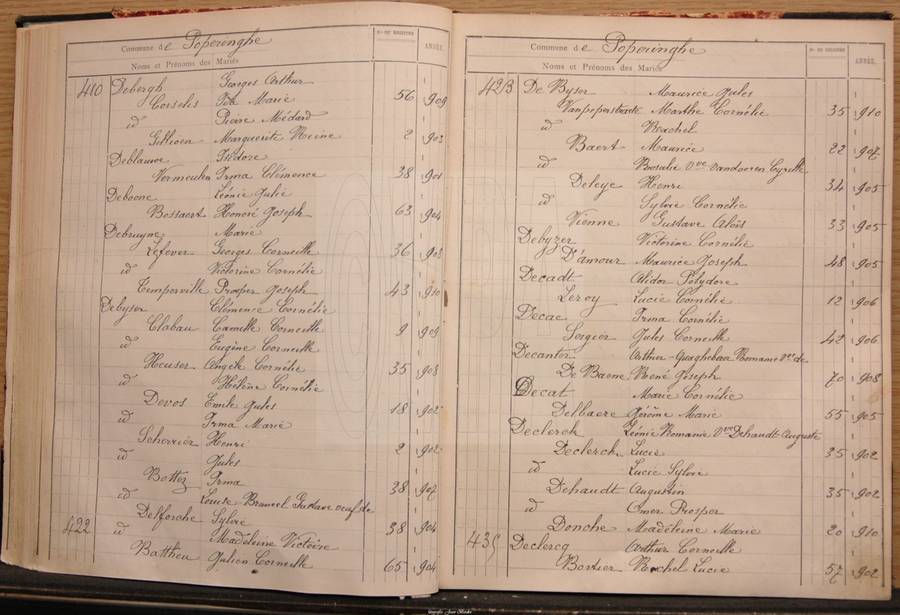 Commune de Poperinghe
Nos DU REGISTRE
ANNÉE.
Noms et Prénoms des Mariés
410 Debergh Georges Arthur
Corselis Marie 56 909
id Pierre Médard
Gillioen Marguerite Reine 2 903
Deblauwe Isidore
Vermeulen Irma Clémence 38 901
Deboone Léonie Julie
Bossaert Honoré Joseph 63 904
Debruyne Marie
Lefever Georges Corneille 36 903
id Victorine Cornélie
Temperville Prosper Joseph 43 910
Debyser Clémence Cornélie
Clabau Camille Corneille 9 909
id Eugène Corneille
Heuser Angèle Cornélie 35 908
id Hélène Cornélie
Devos Emile Jules 18 902
id Irma Marie
Scherrier Henri 2 902
id Jules
Botter Irma 38 907
id Louise Gustave veuf de
Delforche Sylvie 38 904
422 id Madeleine Victoire
Battheu Julien Corneille 65 904
Commune de Poperinghe
Nos DU REGISTRE
ANNÉE.
Noms et Prénoms des Mariés
423 De Byser Maurice Jules
Vanpeperstraete Marthe Cornélie 35 910
id Rachel
Baert Maurice 22 907
id Rosalie Vve Vandooren Cyrille
Deleye Henri 34 905
id Sylvie Cornélie
Vienne Gustave Aloïs 33 905
Debyzer Victorine Cornélie
D'amour Maurice Joseph 48 905
Decadt Alidor Polydore
Leroy Lucie Cornélie 12 906
Decae Irma Cornélie
Sergier Jules Corneille 42 906
Decantor Arthur Romanie Vve de
De Baene René Joseph 70 908
Decat Marie Cornélie
Delbaere Gérôme Marie 55 905
Declerck Léonie Romanie Vve Dehaudt Auguste
Declerck Lucie 35 902
id Lucie Sylvie
Dehaudt Augustin 35 902
id Omer Prosper
Donche Madeleine Marie 20 910
435 Declercq Arthur Corneille
Bortier Rachel Lucie 57 902